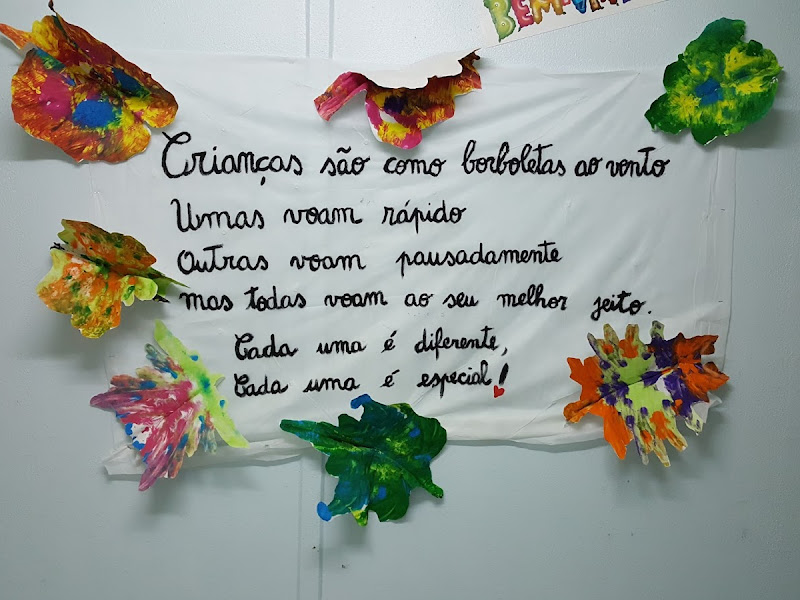 BEMVIN
Crianças são como borboletas ao vento
Umas voam rápido
Outras voam pausadamente
mas todas voam ao seu melhor jeito.
Cada uma é diferente,
Cada uma é especial!